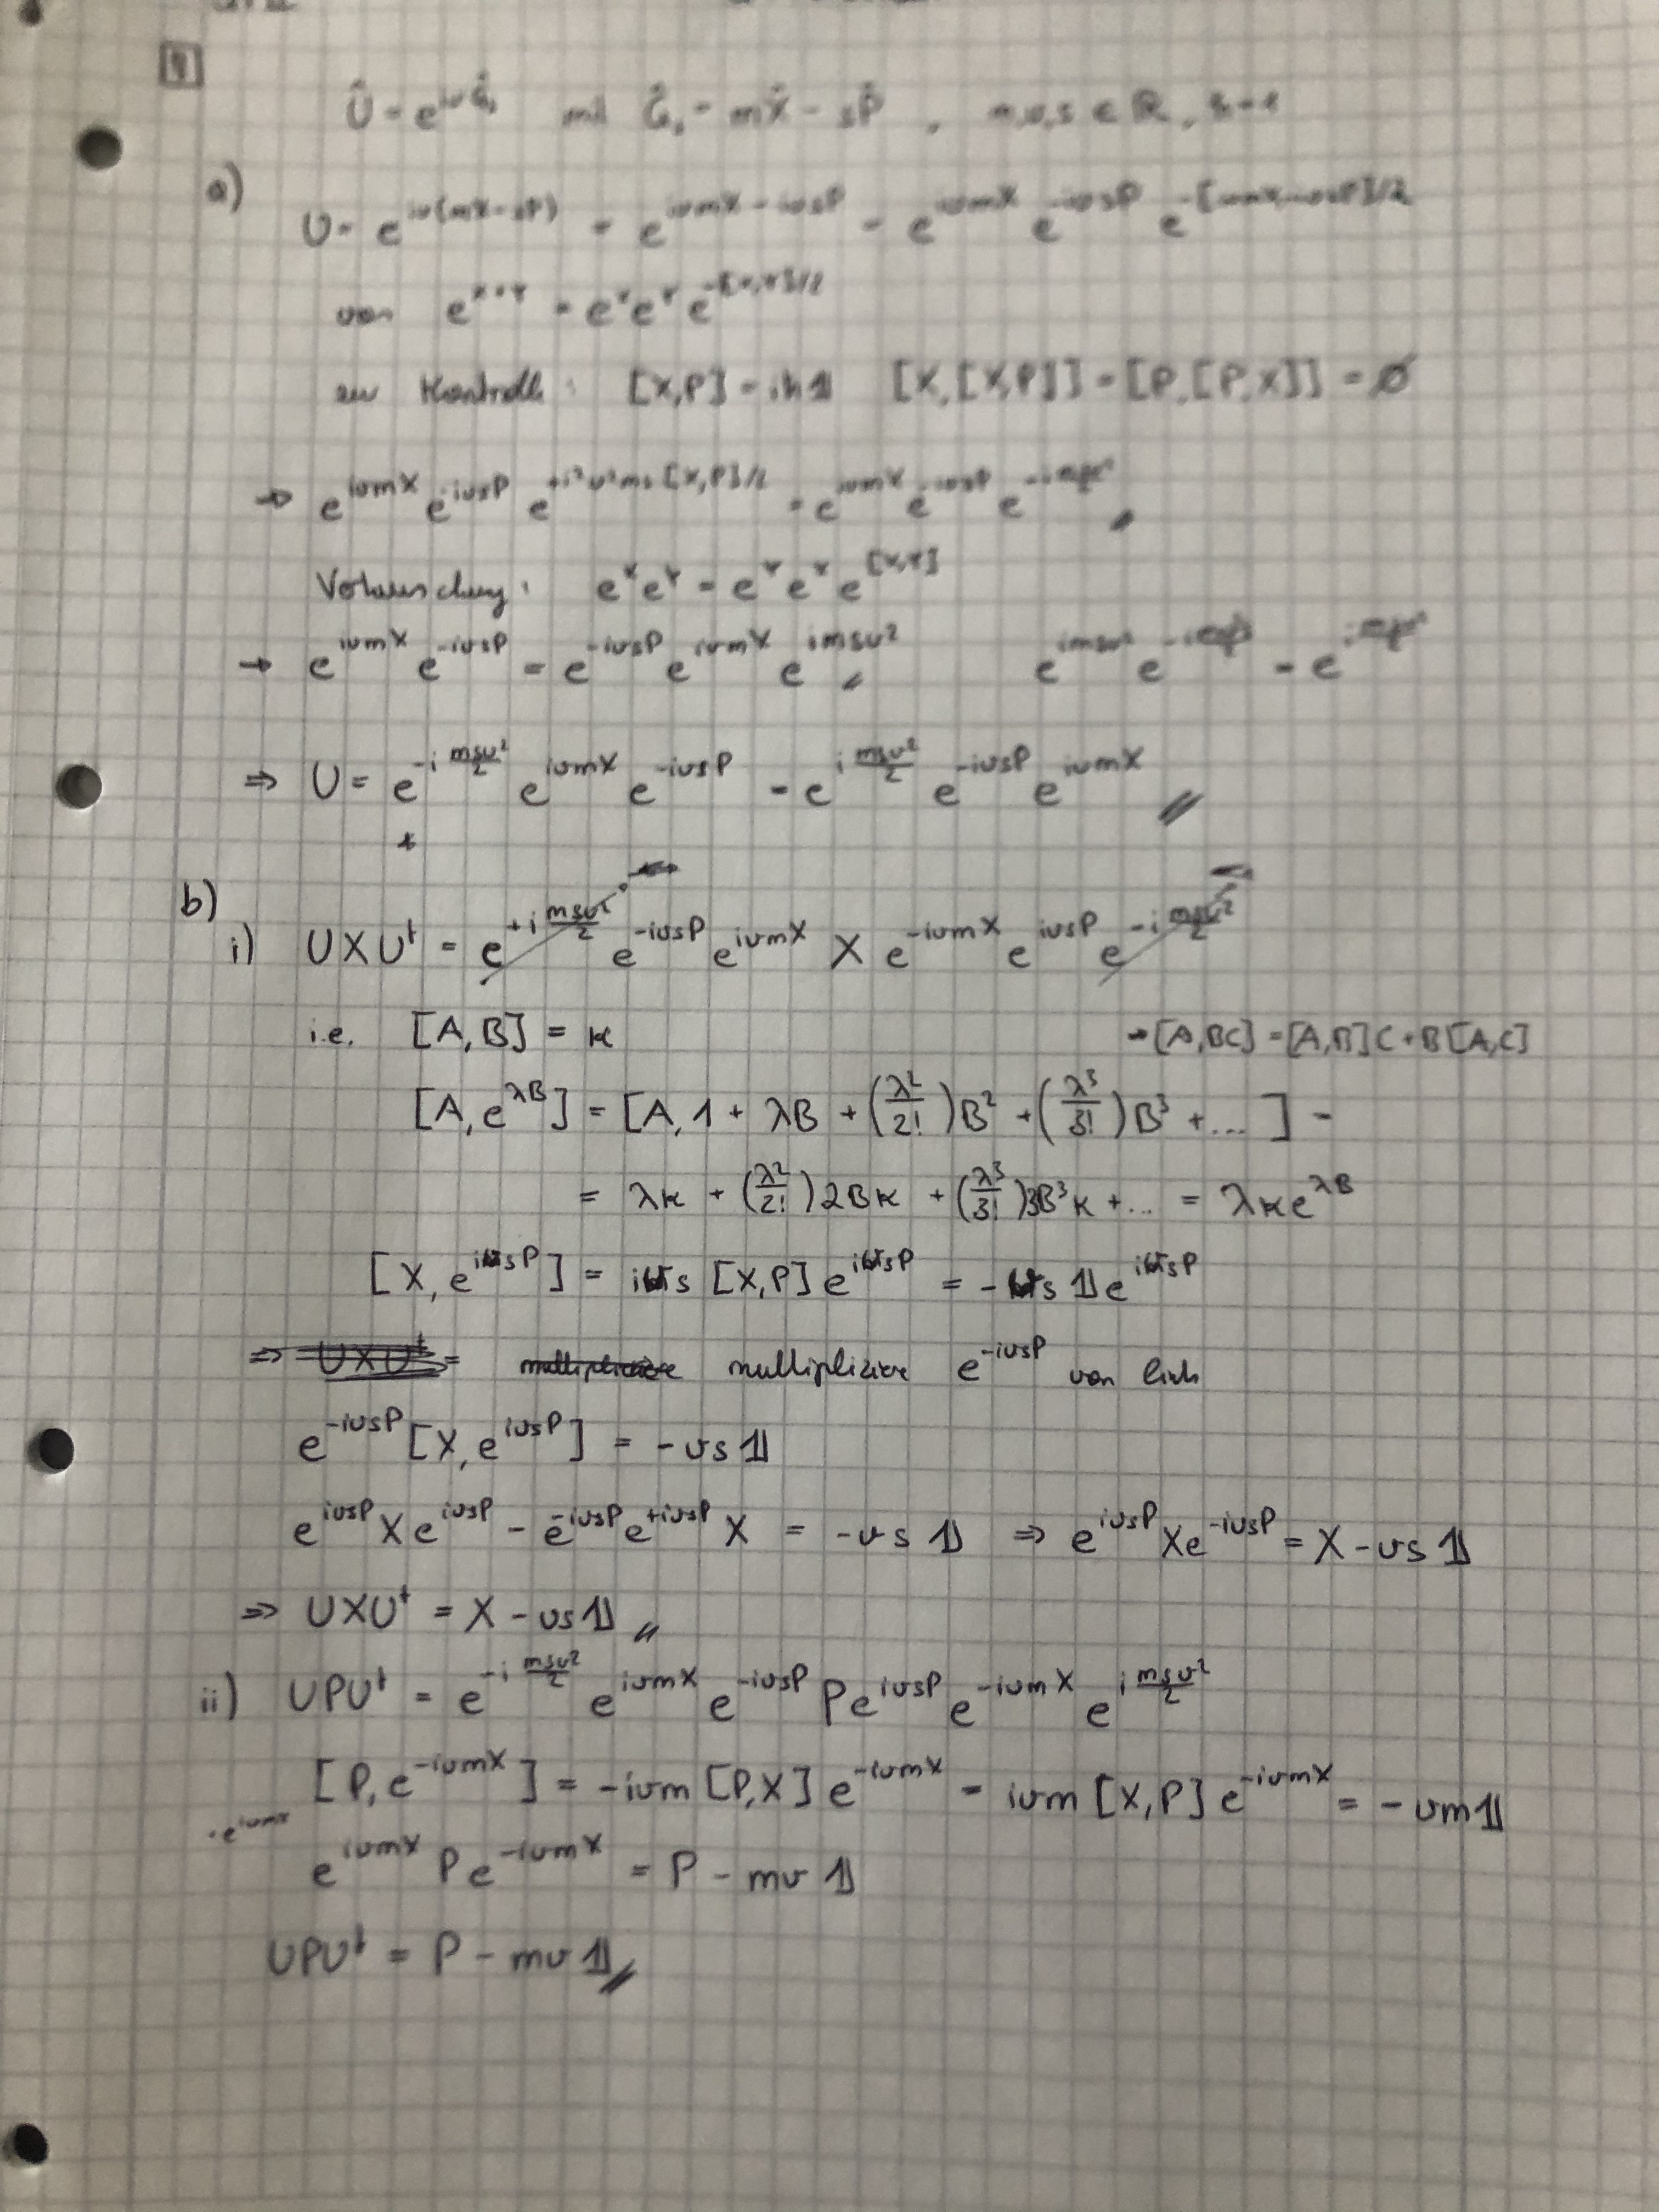 Û = e^{iv Ĝ_s} mit Ĝ_s = mX̂ - sP̂ , m,v,s ∈ ℝ, ħ=1
a)
U = e^{iv(mX-sP)} = e^{ivmX - ivsP} = e^{ivmX} e^{-ivsP} e^{-[ivmX,-ivsP]/2}
von e^{X+Y} = e^X e^Y e^{-[X,Y]/2}
zur Kontrolle: [X,P] = iħ𝟙 [X,[X,P]] = [P,[P,X]] = ∅
→ e^{ivmX} e^{-ivsP} e^{+i²v²ms[X,P]/2} = e^{ivmX} e^{-ivsP}
Vertauschung: e^X e^Y = e^Y e^X e^{[X,Y]}
→ e^{ivmX} e^{-ivsP} = e^{-ivsP} e^{ivmX} e^{imsv²} e^{imsv²}
⇒ U = e^{-i msv²/2} e^{ivmX} e^{-ivsP} = e^{i msv²/2} e^{-ivsP} e^{ivmX}
b)
i) UXU† = e^{+i msv²/2} e^{-ivsP} e^{ivmX} X e^{-ivmX} e^{ivsP} e^{-i msv²/2}
i.e. [A,B] = κ → [A,BC] = [A,B]C + B[A,C]
[A,e^{λB}] = [A, 1 + λB + (λ²/2!)B² + (λ³/3!)B³ + ... ] =
= λκ + (λ²/2!)2Bκ + (λ³/3!)3B³κ + ... = λκe^{λB}
[X,e^{ivsP}] = ivs [X,P] e^{ivsP} = -vs 𝟙 e^{ivsP}
⇒ UXU† = multipliziere multipliziere e^{-ivsP} von links
e^{-ivsP} [X,e^{ivsP}] = -vs 𝟙
e^{ivsP} X e^{ivsP} - e^{-ivsP} e^{+ivsP} X = -vs 𝟙 ⇒ e^{ivsP} X e^{-ivsP} = X - vs 𝟙
⇒ UXU† = X - vs 𝟙
ii) UPU† = e^{-i msv²/2} e^{ivmX} e^{-ivsP} P e^{ivsP} e^{-ivmX} e^{i msv²/2}
[P,e^{-ivmX}] = -ivm [P,X] e^{-ivmX} = ivm [X,P] e^{-ivmX} = -vm 𝟙
·e^{ivmX}
e^{ivmX} P e^{-ivmX} = P - mv 𝟙
UPU† = P - mv 𝟙